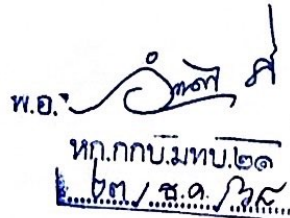 พ.อ.
หก.กกบ.มทบ.๒๑
๒๓ / ธ.ค. / ๖๘